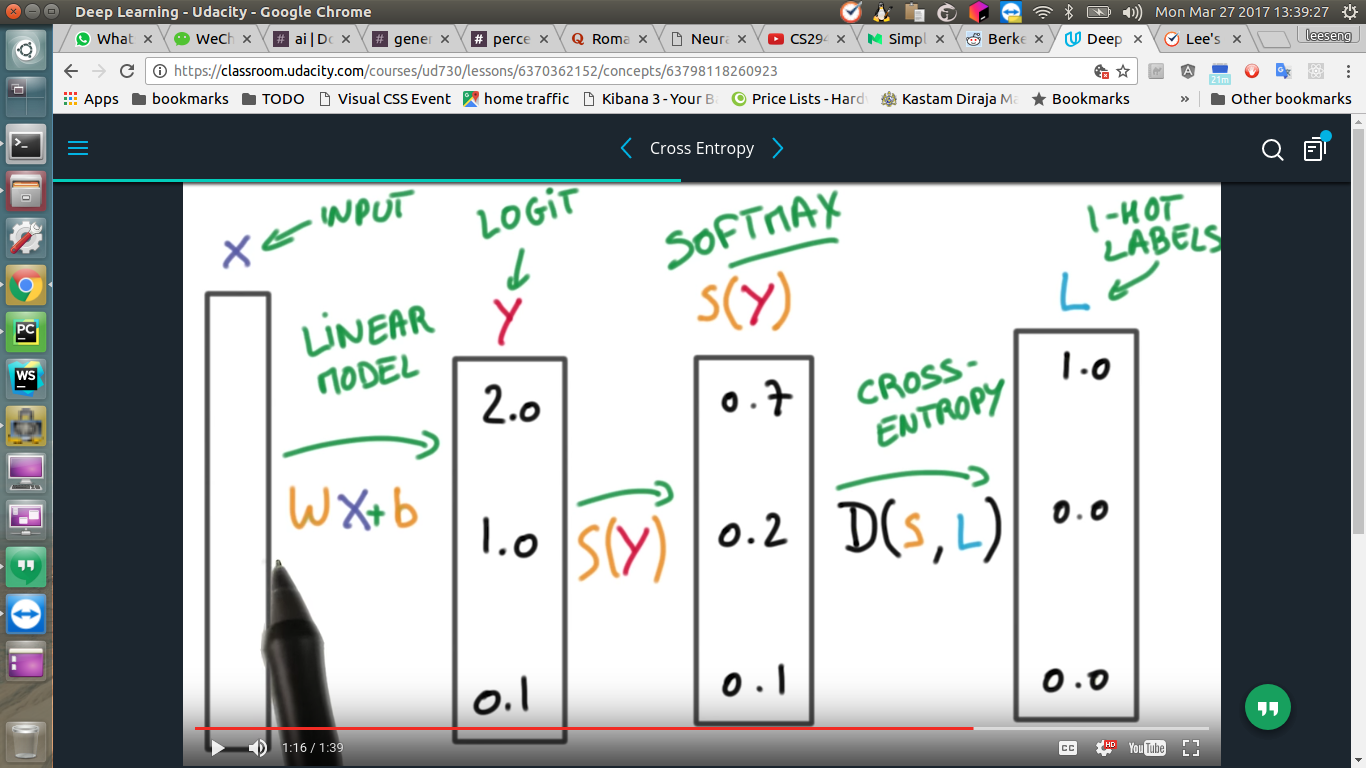 Deep Learning - Udacity - Google Chrome
Mon Mar 27 2017 13:39:27
What
WeCh
# ai | Do
# gener
# perce
Roma
Neura
CS294
Simpl
Berke
Deep
Lee's
leeseng
https://classroom.udacity.com/courses/ud730/lessons/6370362152/concepts/63798118260923
21m
Apps
bookmarks
TODO
Visual CSS Event
home traffic
Kibana 3 - Your B
Price Lists - Hard
Kastam Diraja Ma
Bookmarks
»
Other bookmarks
Cross Entropy
INPUT
LOGIT
SOFTMAX
1-HOT
LABELS
X
Y
S(Y)
L
LINEAR
MODEL
CROSS-
ENTROPY
WX+b
S(Y)
D(S, L)
2.0
1.0
0.1
0.7
0.2
0.1
1.0
0.0
0.0
1:16 / 1:39
CC
HD
YouTube
PC
WS